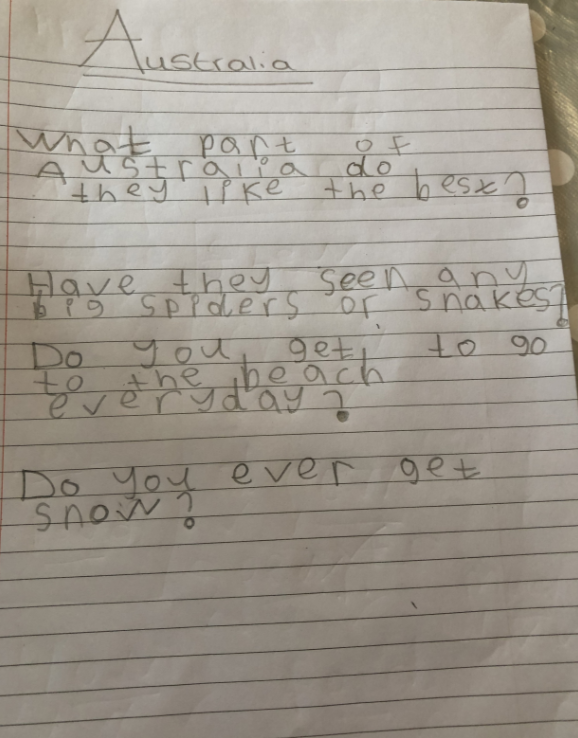 Australia
What part of
Australia do
they like the best?
Have they seen any
big spiders or snakes?
Do you get to go
to the beach
everyday?
Do you ever get
snow?